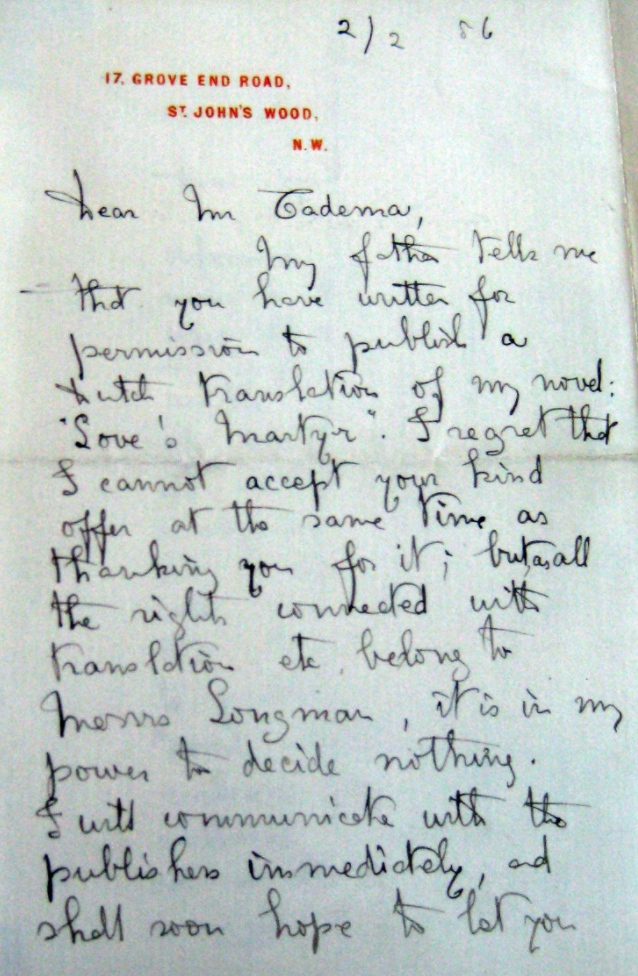 2/2 86
17, GROVE END ROAD,
ST JOHN'S WOOD,
N.W.
Dear Mr Tadema,
My father tells me
that you have written for
permission to publish a
dutch translation of my novel:
"Love's Martyr". I regret that
I cannot accept your kind
offer at the same time as
thanking you for it; but as all
the rights connected with
translation etc. belong to
Messrs Longman, it is in my
power to decide nothing.
I will communicate with the
publishers immediately, and
shall soon hope to let you